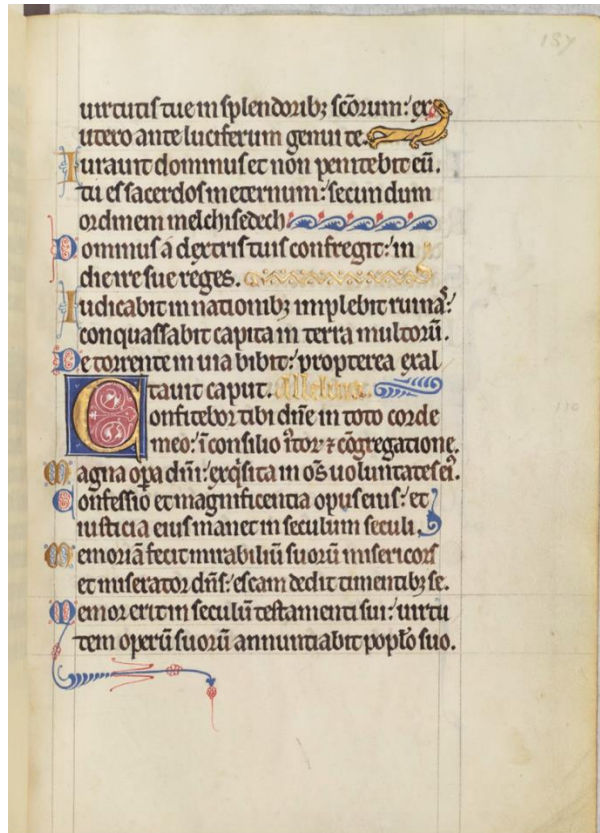 137
uirtutis tue in splendorib; sc̃orum: ex
utero ante luciferum genui te.
Iurauit dominus et non penitebit eū.
tu es sacerdos in eternum: secundum
ordinem melchisedech
Dominus a dextris tuis confregit: in
die ire sue reges.
Iudicabit in nationib; implebit ruinas:
conquassabit capita in terra multorū.
De torrente in uia bibit: propterea exal
tauit caput. Alleluia.
Confitebor tibi dñe in toto corde
meo: ī consilio iustor ⁊ cōgregatione.
Magna opa dñi: exqisita in oēs uoluntates ei.
Confessio et magnificentia opus eius: et
iusticia eius manet in seculum seculi.
Memoriā fecit mirabiliū suorū misericors
et miserator dñs: escam dedit timentib; se.
Memor erit in seculū testamenti sui: uirtu
tem operū suorū annuntiabit poplo suo.
110